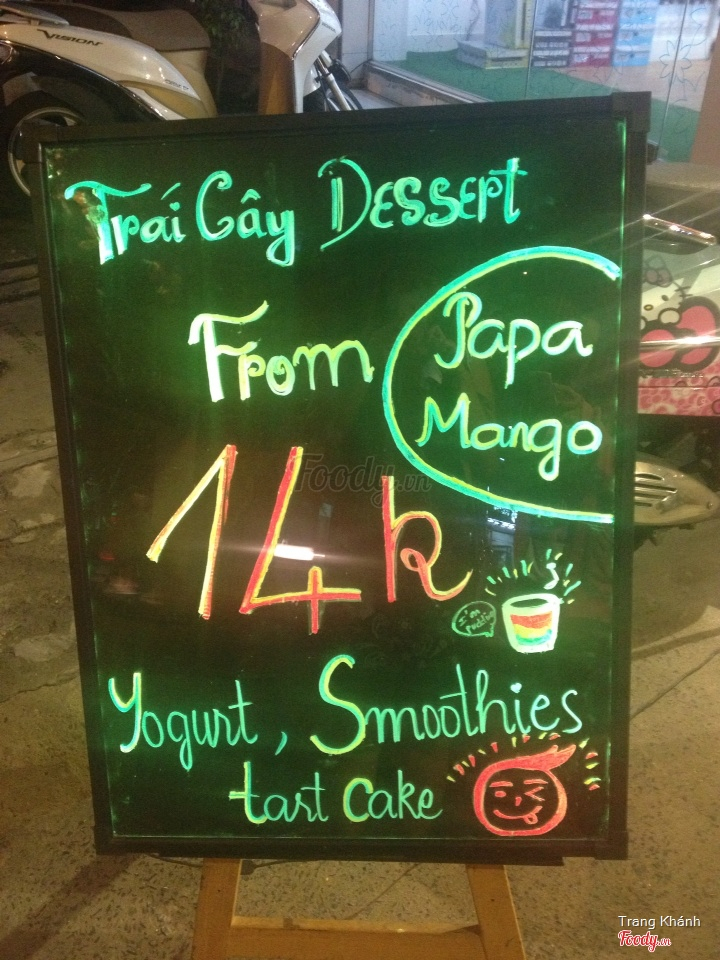 VISION
Trái Cây Dessert
From
Papa
Mango
14k
I'm
pudding
Yogurt, Smoothies
tart cake
Foody.vn
Trang Khánh
Foody.vn